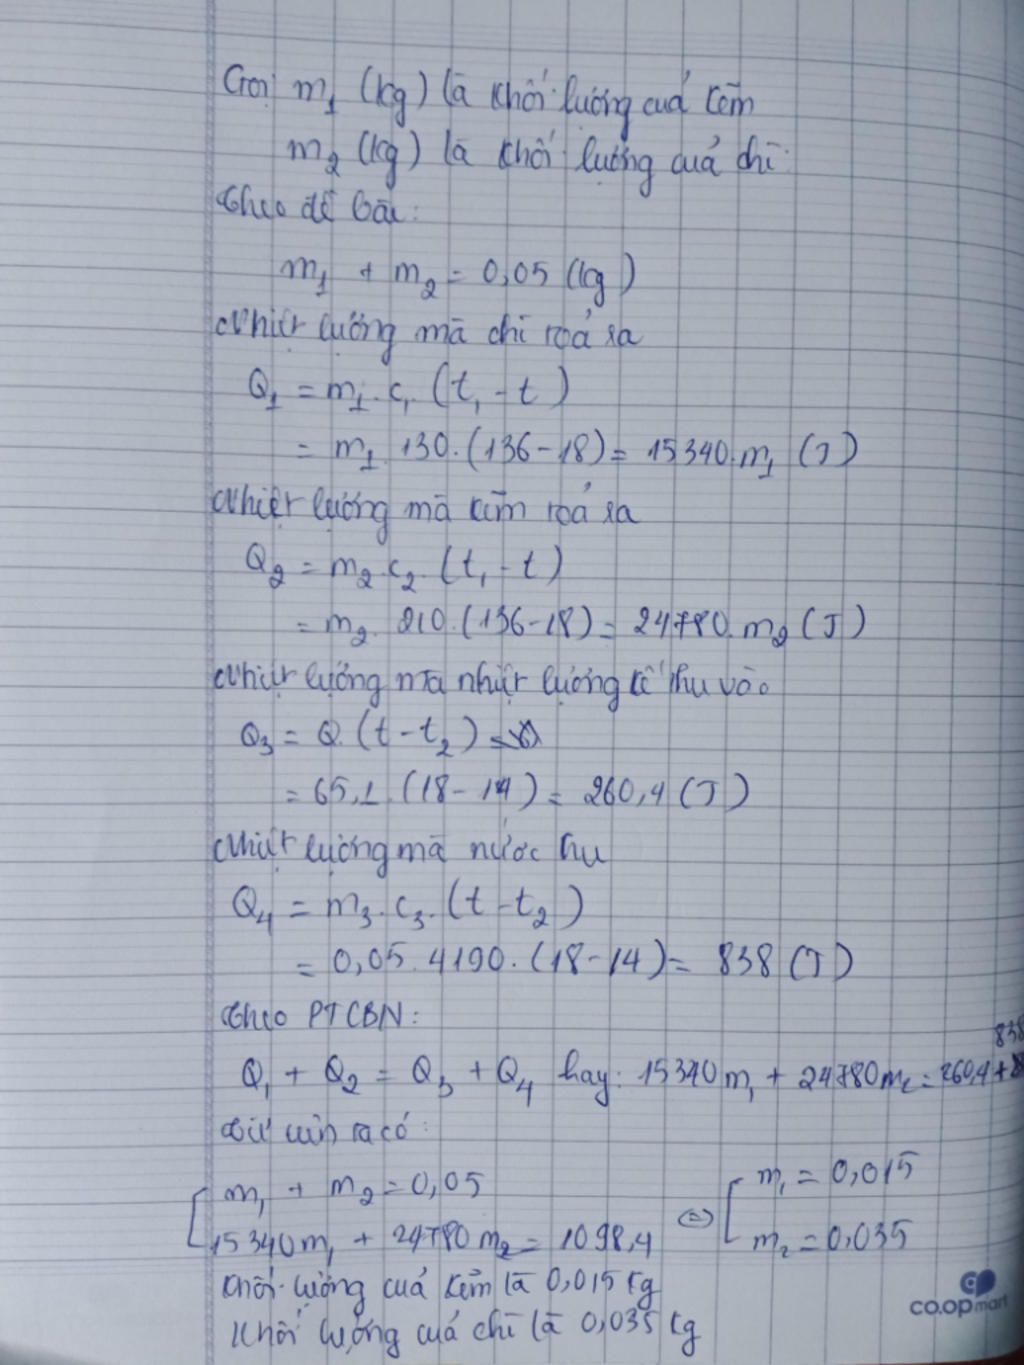 Gọi m₁ (kg) là khối lượng của kẽm
m₂ (kg) là khối lượng của chì
Theo đề bài:
m₁ + m₂ = 0,05 (kg)
Nhiệt lượng mà chì toả ra
Q₁ = m₁.c₁.(t₁ - t)
= m₁.130.(136-18) = 15340.m₁ (J)
Nhiệt lượng mà kẽm toả ra
Q₂ = m₂.c₂.(t₁ - t)
= m₂.210.(136-18) = 24780.m₂ (J)
Nhiệt lượng mà nhiệt lượng kế thu vào
Q₃ = Q.(t - t₂)
= 65,1.(18-14) = 260,4 (J)
Nhiệt lượng mà nước thu
Q₄ = m₃.c₃.(t - t₂)
= 0,05.4190.(18-14) = 838 (J)
Theo PTCBN:
Q₁ + Q₂ = Q₃ + Q₄ hay: 15340m₁ + 24780m₂ = 260,4 + 838
Từ trên ta có:
m₁ + m₂ = 0,05
15340m₁ + 24780m₂ = 1098,4 ⇔ m₁ = 0,015
m₂ = 0,035
Khối lượng của kẽm là 0,015 kg
Khối lượng của chì là 0,035 kg
co.opmart